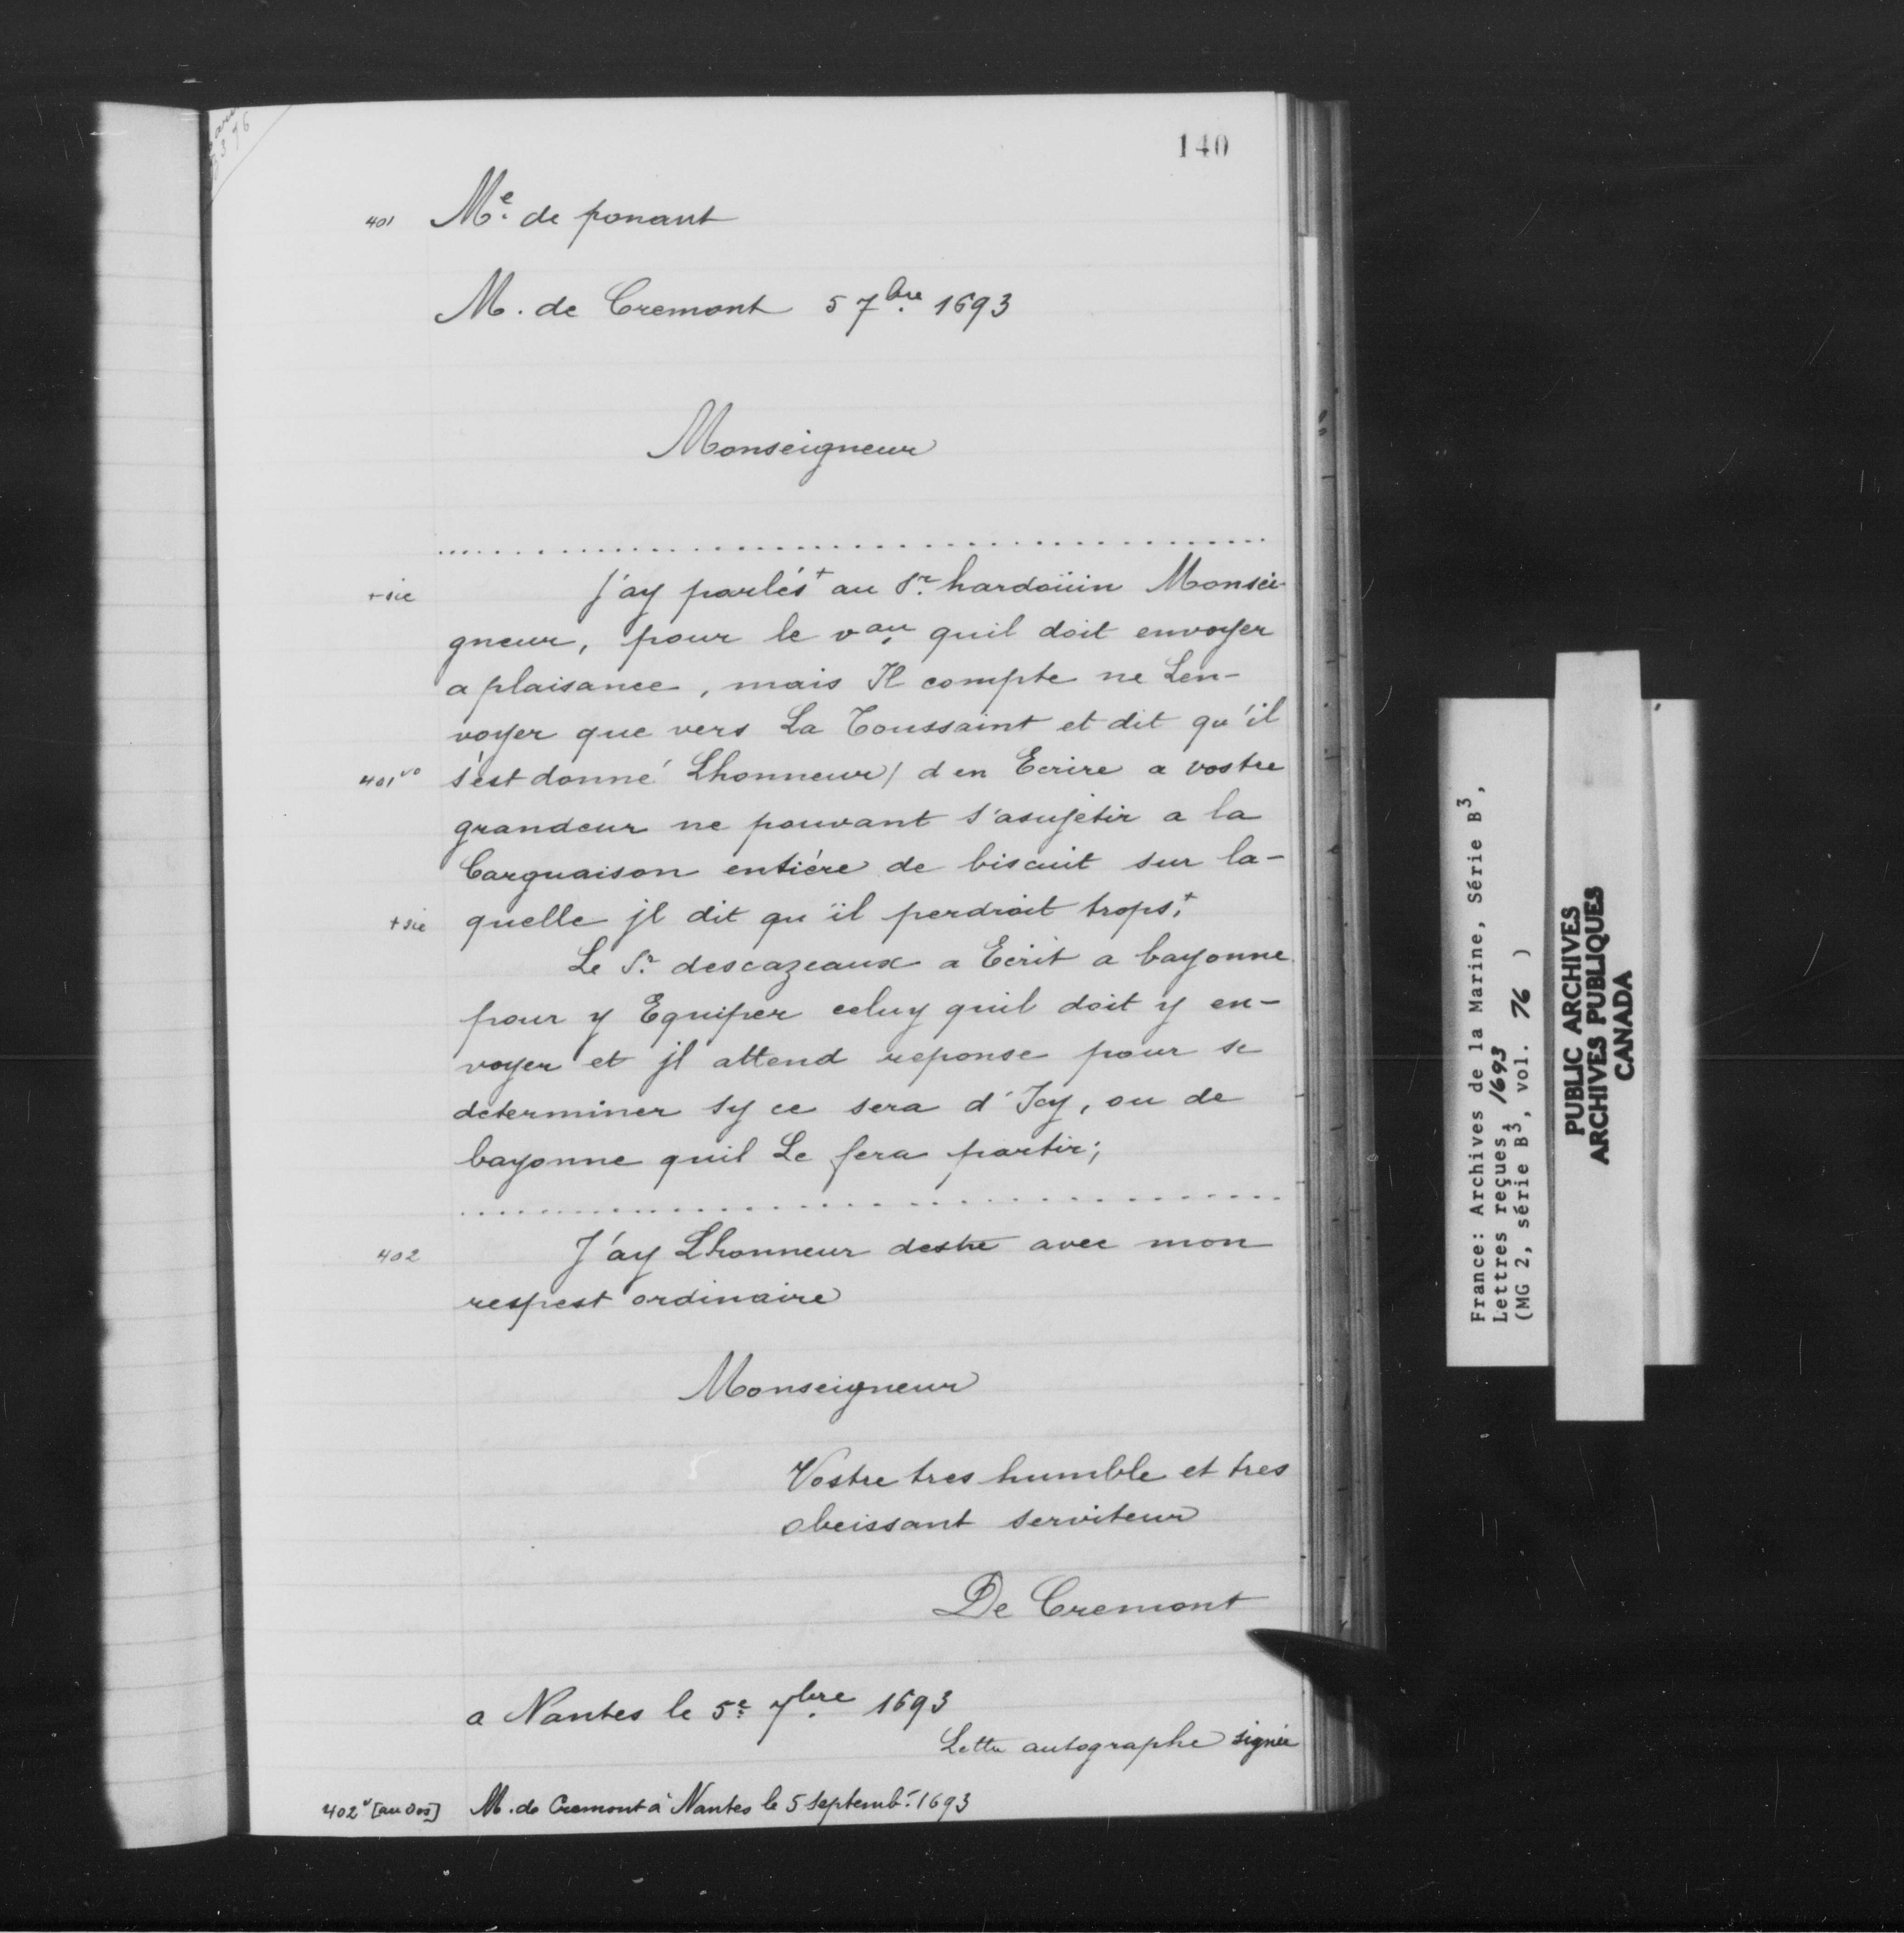 140
401 Me. de ponant
M. de Cremont 5 7bre. 1693
Monseigneur
+ sic J'ay parlés+ au Sr. hardoüin Monsei-
gneur, pour le vau. quil doit envoyer
a plaisance, mais Il compte ne Len-
voyer que vers La Toussaint et dit qu'il
401vo s'est donné Lhonneur / d en Ecrire a vostre
grandeur ne pouvant s'asujetir a la
Carguaison entiére de biscuit sur la-
+ sic quelle jl dit qu ïl perdroit trops,+
Le Sr. descazeaux a Ecrit a bayonne
pour y Equiper celuy quil doit y en-
voyer et jl attend reponse pour se
determiner sy ce sera d'Icy, ou de
bayonne quil Le fera partir;
402 J'ay Lhonneur destre avec mon
respest ordinaire
Monseigneur
Vostre tres humble et tres
obeissant serviteur
De Cremont
a Nantes le 5e. 7bre. 1693
Lettre autographe signée
402v [au dos] M. de Cremont à Nantes le 5 septemb. 1693
France: Archives de la Marine, Série B3,
Lettres reçues, 1693
(MG 2, série B3, vol. 76 )
PUBLIC ARCHIVES
ARCHIVES PUBLIQUES
CANADA